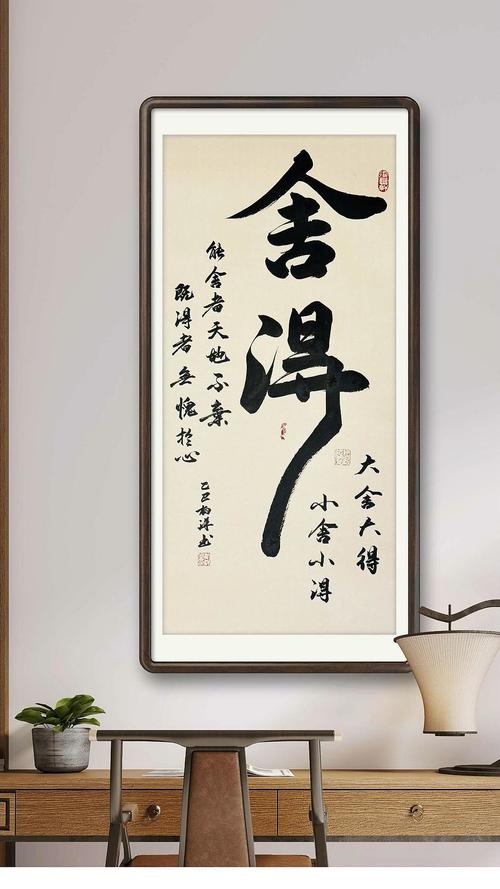 舍得
大舍大得
小舍小得
能舍者天地不棄
既得者無愧於心
乙巳